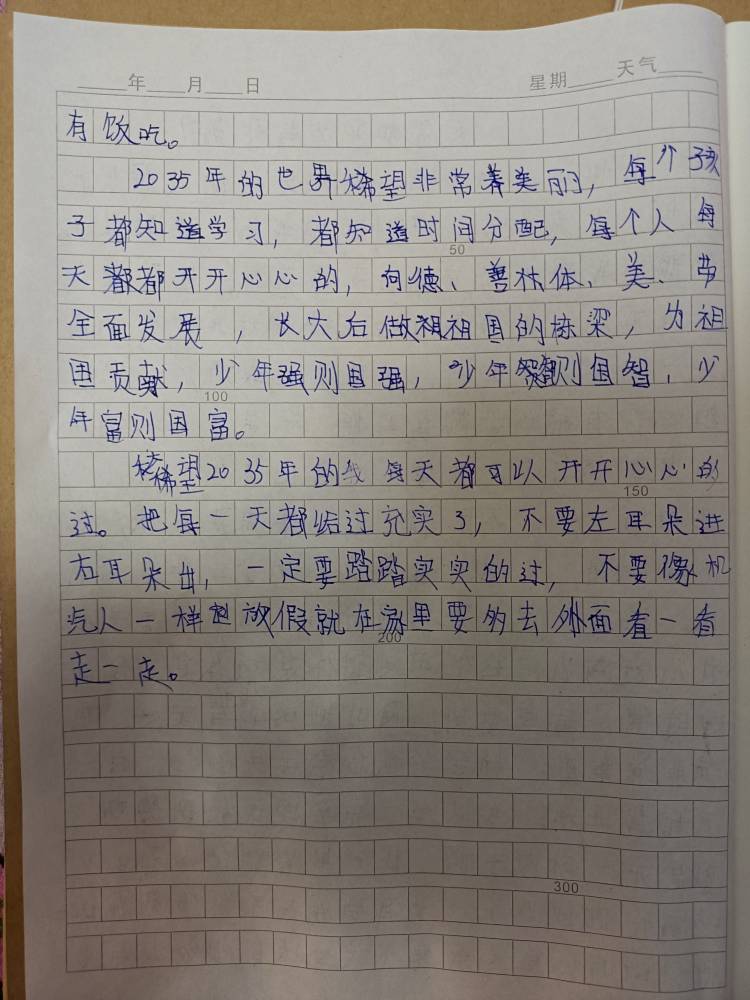 年 月 日 星期 天气
有饭吃。
2035年的世界希望非常美丽，每个孩
子都知道学习，都知道时间分配，每个人每
50
天都都开开心心的，向德、善、体、美、劳
全面发展，长大后做祖国的栋梁，为祖
国贡献，少年强则国强，少年智则国智，少
100
年富则国富。
希望2035年的我每天都可以开开心心的
150
过。把每一天都给过充实了，不要左耳朵进
右耳朵出，一定要踏踏实实的过，不要像机
汽人一样放假就在家里要多去外面看一看
200
走一走。
300